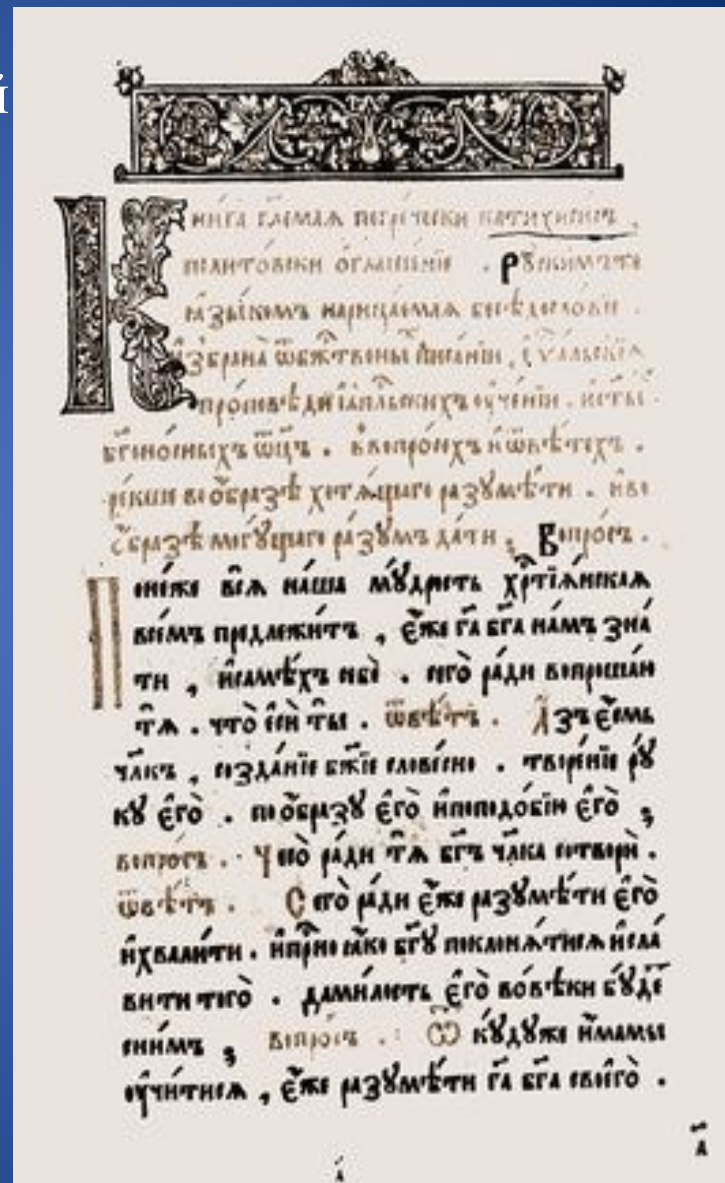 й
Книга гл҃емая погре́чески катихи́сисъ .
полито́вски ѡглаше́нїе . Ру́скимъже
ꙗзы́комъ нарица́емая бесѣдосло́вїе .
и҆збрана̀ ѿбж҃твены писа́нїи , є҆ѵа́льскиꙗ
про́повѣди и҆а҆пльскихъ ѹ҆че́нїи . и҆ст҃ы
бг҃оно́сныхъ ѿц҃ъ . ввопро́сехъ и҆ѿвѣ́техъ .
ре́кше воѡ҆́бразѣ хотѧ́щаго разꙋмѣ́ти . и҆во
ѡ҆́бразѣ могꙋ́щаго ра́зꙋмъ да́ти . Вопро́съ .
Поне́же всѧ̀ на́ша мꙋ́дрость хрⷭ҇тїѧ́нскаѧ
всѣ́мъ предлежи́тъ , є҆́же гⷭ҇а бг҃а на́мъ зна́
ти , и҆самѣ́хъ себѐ . сего̀ ра́ди вопроша́ю
тѧ̀ . что̀ є҆сѝ ты̀ . ѿвѣ́тъ . А҆́зъ є҆́смь
чл҃къ , созда́нїе бж҃їе слове́сно . творе́нїе рꙋ
кꙋ̀ є҆го̀ . поѡ҆́бразꙋ є҆го̀ и҆поподо́бїю є҆го̀ ;
вопро́съ . Чесо̀ ра́ди тѧ̀ бг҃ъ чл҃ка сотворѝ .
ѿвѣ́тъ . Сего̀ ра́ди є҆́же разꙋмѣ́ти є҆го̀
и҆хвали́ти . и҆при́сно бг҃ꙋ поклонѧ́тисѧ и҆сла́
вити того̀ . дами́лость є҆го̀ вовѣ́ки бꙋ́де
сни́мъ ; вопро́съ . Ѿкꙋ́дꙋже и҆́мамы
ѹ҆чи́тисѧ , є҆́же разꙋмѣ́ти гⷭ҇а бг҃а своего̀ .
а҃
а҃